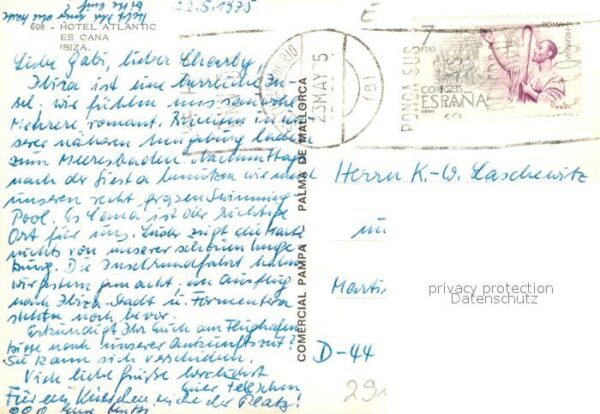 22.5.1975
608 - HOTEL ATLANTIC
ES CANA
IBIZA.
Liebe Gabi, lieber Charly,
Ibiza ist eine herrliche In-
sel. Wir fühlen uns sauwohl.
Mehrere romant. Buchten in un-
serer näheren Umgebung laden
zum Meeresbaden. Nachmittags
nach der Siesta benutzen wir
unseren recht großen Swimming-
Pool. Es Cana ist der richtige
Ort für uns. Leider zeigt die Karte
nichts von unserer schönen Umge-
bung. Die Inselrundfahrt haben
wir gestern gemacht, ein Ausflug
nach Ibiza-Stadt u. Formentera
stehen noch bevor.
Erkundigt Ihr Euch am Flughafen
bitte nach unserer Ankunftszeit?
Sie kann sich verschieben.
Viele liebe Grüße
Für ein Küßchen reicht der Platz!
COMERCIAL PAMPA PALMA DE MALLORCA
23 MAY 75
(8)
PONGA SUS
7
PTAS
CORREOS
ESPAÑA
ROMA
HISPANIA
Herrn K.-W. Laschewitz
D-44
29
privacy protection
Datenschutz